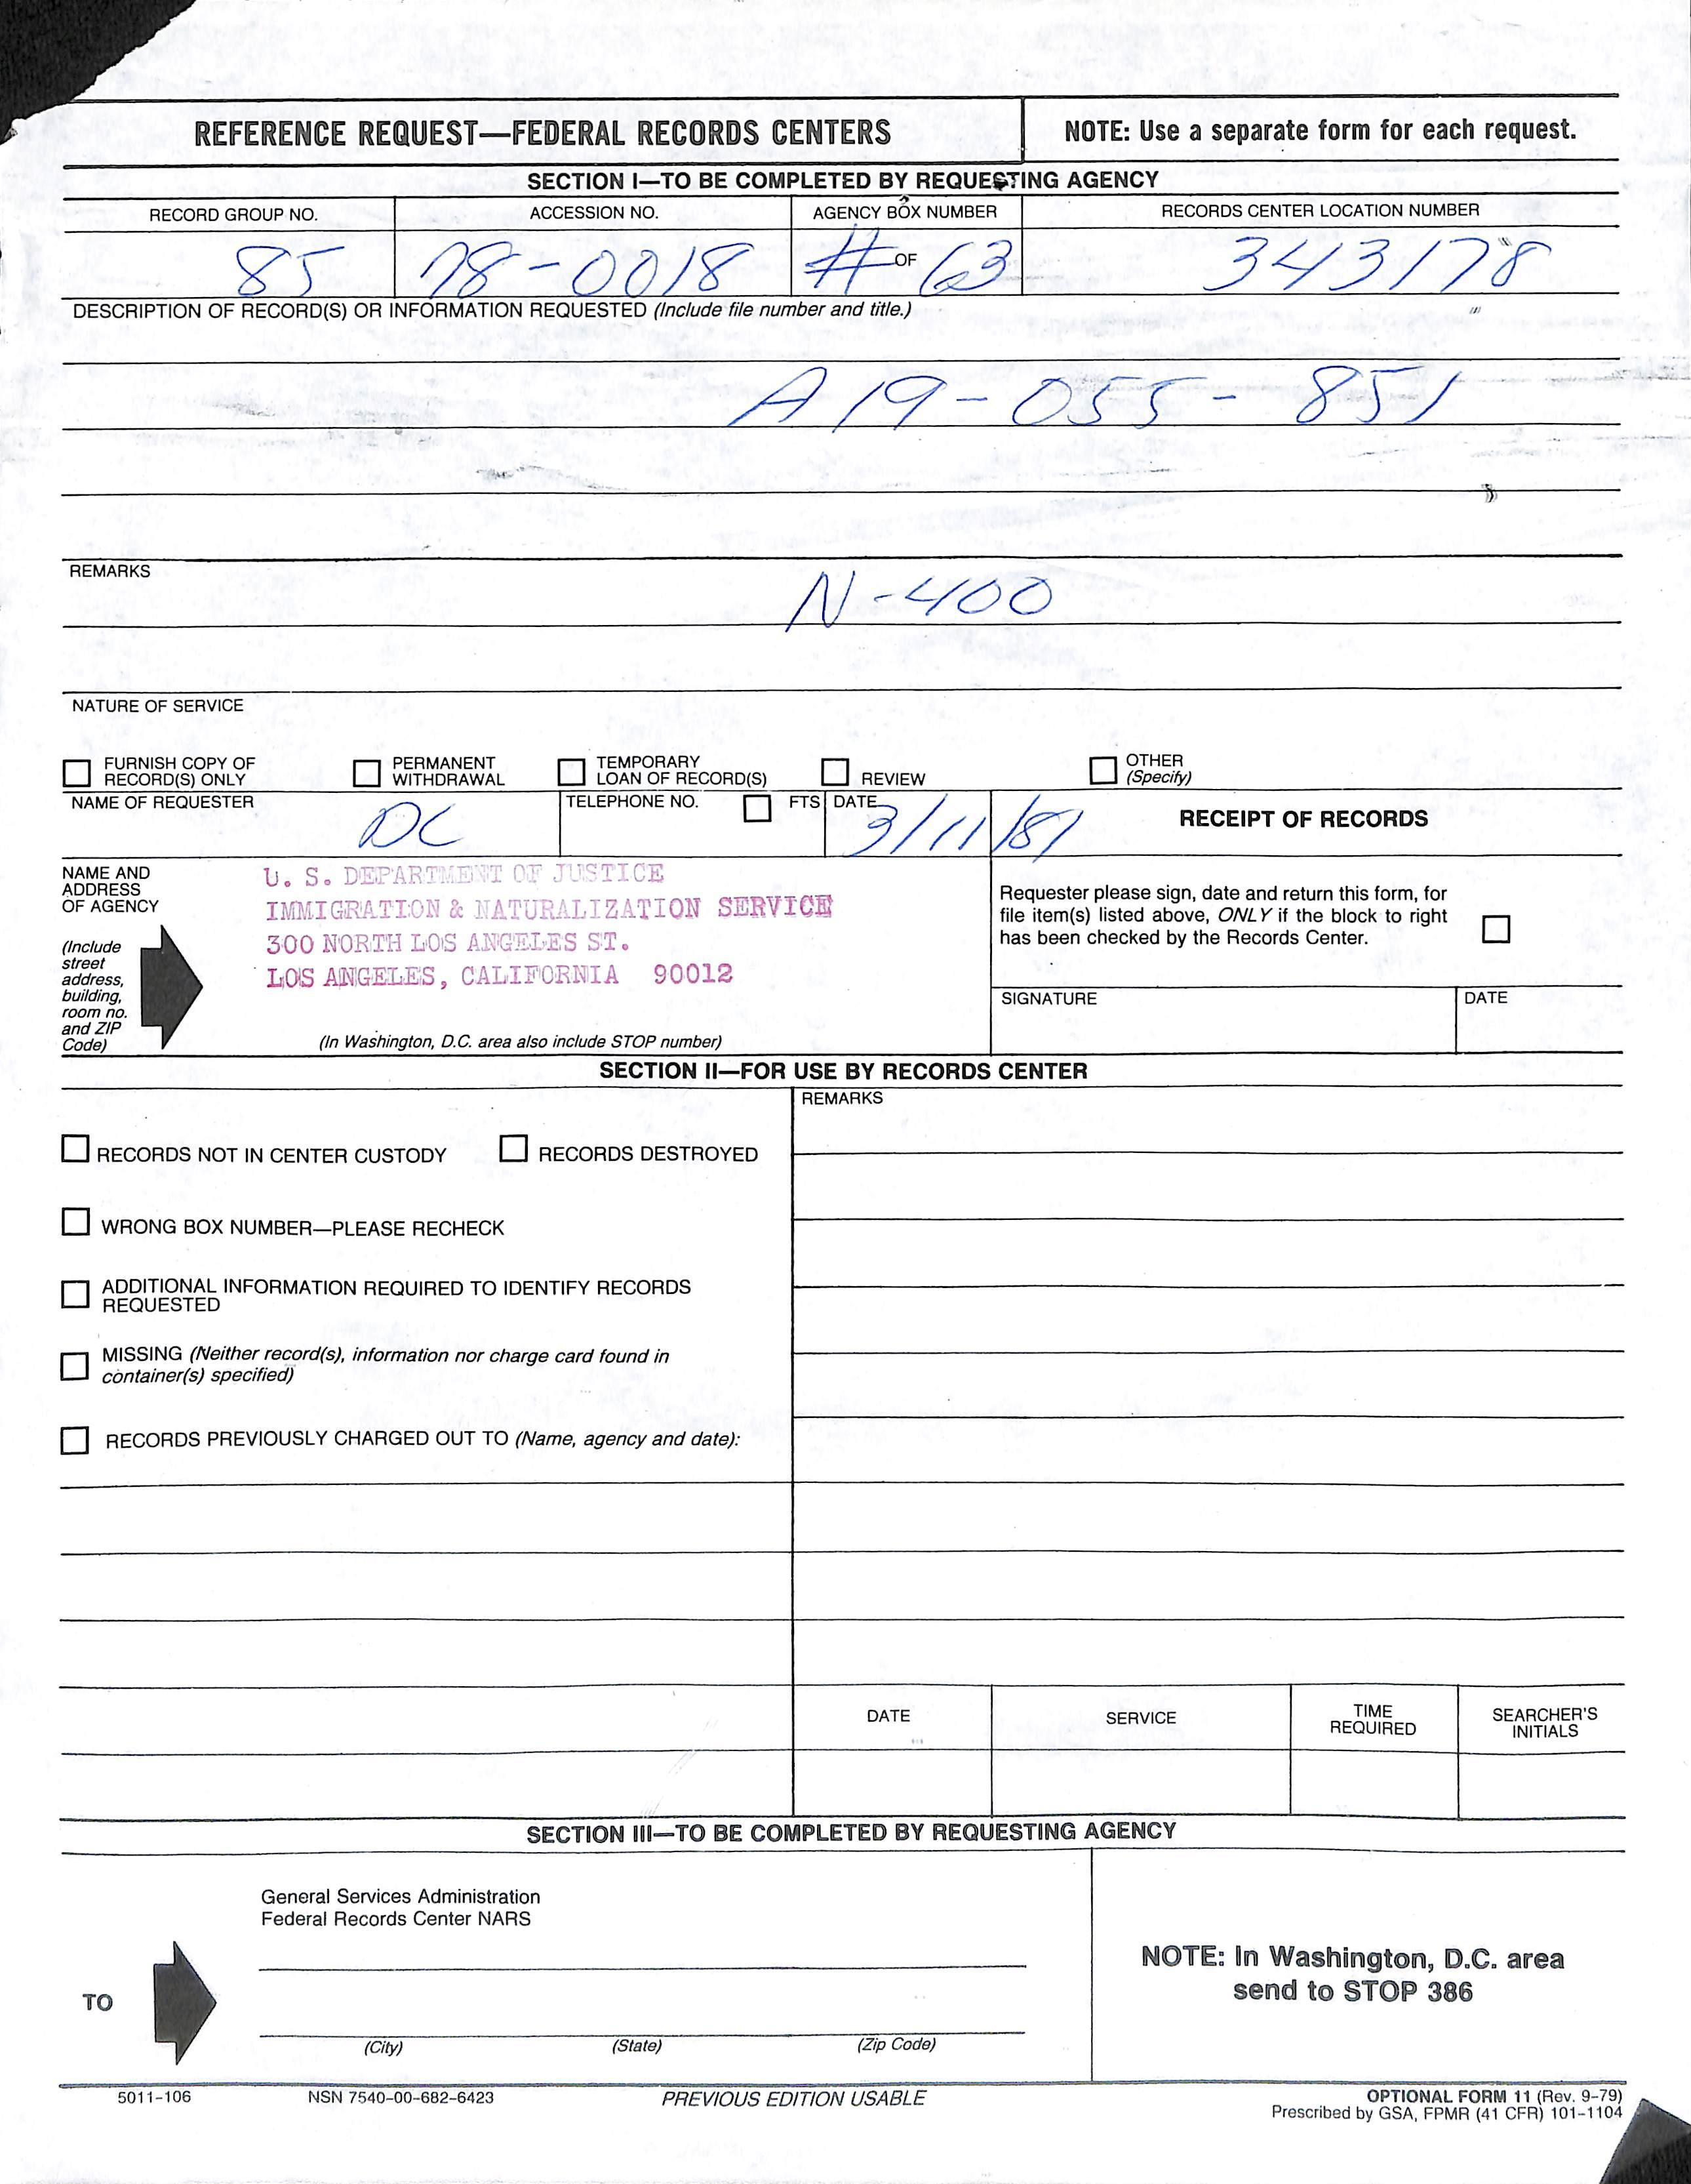 REFERENCE REQUEST—FEDERAL RECORDS CENTERS
NOTE: Use a separate form for each request.
SECTION I—TO BE COMPLETED BY REQUESTING AGENCY
RECORD GROUP NO.
ACCESSION NO.
AGENCY BOX NUMBER
RECORDS CENTER LOCATION NUMBER
85
78-0018
# OF 63
343178
DESCRIPTION OF RECORD(S) OR INFORMATION REQUESTED (Include file number and title.)
A19-055-851
REMARKS
N-400
NATURE OF SERVICE
FURNISH COPY OF
RECORD(S) ONLY
PERMANENT
WITHDRAWAL
TEMPORARY
LOAN OF RECORD(S)
REVIEW
OTHER
(Specify)
NAME OF REQUESTER
DC
TELEPHONE NO.
FTS
DATE
3/11/81
RECEIPT OF RECORDS
NAME AND
ADDRESS
OF AGENCY
(Include
street
address,
building,
room no.
and ZIP
Code)
U. S. DEPARTMENT OF JUSTICE
IMMIGRATION & NATURALIZATION SERVICE
300 NORTH LOS ANGELES ST.
LOS ANGELES, CALIFORNIA 90012
(In Washington, D.C. area also include STOP number)
Requester please sign, date and return this form, for
file item(s) listed above, ONLY if the block to right
has been checked by the Records Center.
SIGNATURE
DATE
SECTION II—FOR USE BY RECORDS CENTER
RECORDS NOT IN CENTER CUSTODY
RECORDS DESTROYED
WRONG BOX NUMBER—PLEASE RECHECK
ADDITIONAL INFORMATION REQUIRED TO IDENTIFY RECORDS
REQUESTED
MISSING (Neither record(s), information nor charge card found in
container(s) specified)
RECORDS PREVIOUSLY CHARGED OUT TO (Name, agency and date):
REMARKS
DATE
SERVICE
TIME
REQUIRED
SEARCHER'S
INITIALS
SECTION III—TO BE COMPLETED BY REQUESTING AGENCY
General Services Administration
Federal Records Center NARS
TO
(City)
(State)
(Zip Code)
NOTE: In Washington, D.C. area
send to STOP 386
5011-106
NSN 7540-00-682-6423
PREVIOUS EDITION USABLE
OPTIONAL FORM 11 (Rev. 9-79)
Prescribed by GSA, FPMR (41 CFR) 101-1104